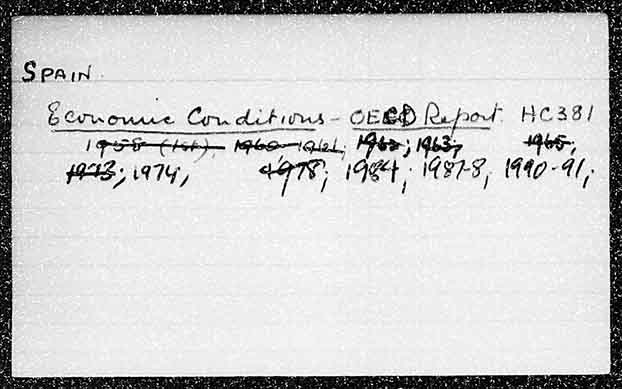 SPAIN.
Economic Conditions - OECD Report. HC381
1958 (1st), 1960-1961, 1962; 1963, 1965,
1973; 1974, 1978; 1984; 1987-8; 1990-91;